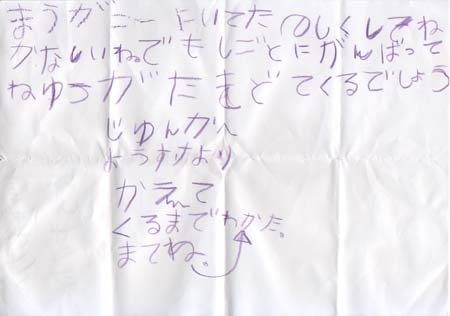 まうがーーにいてたのしくしてね
かないいねでもしごとにがんばって
ねゆうがたもどてくるでしょう
じゅんかへ
ようすけより
かえて
くるまでわかた。
まてね。